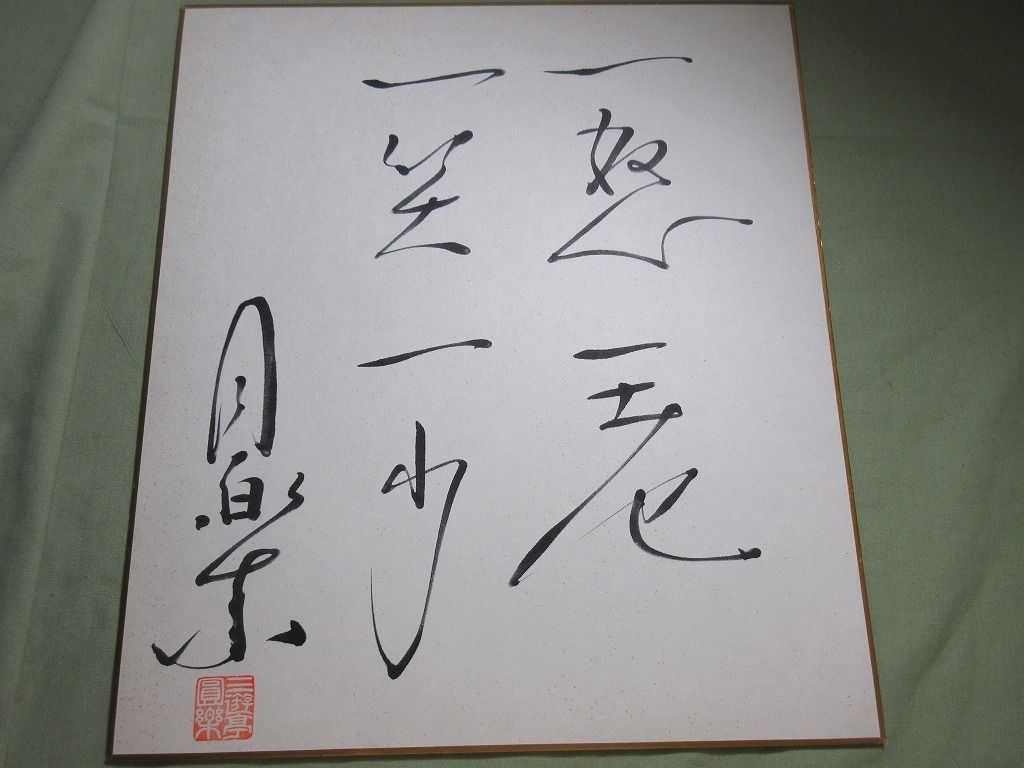 一怒一老
一笑一少
円楽
三遊亭
圓樂